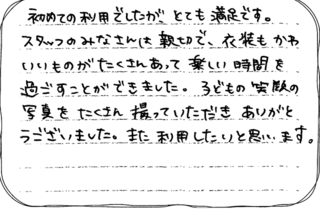 初めての利用でしたが、とても満足です。
スタッフのみなさんは親切で、衣装もかわ
いいものがたくさんあって楽しい時間を
過ごすことができました。子どもの笑顔の
写真をたくさん撮っていただきありがと
うございました。また利用したいと思います。